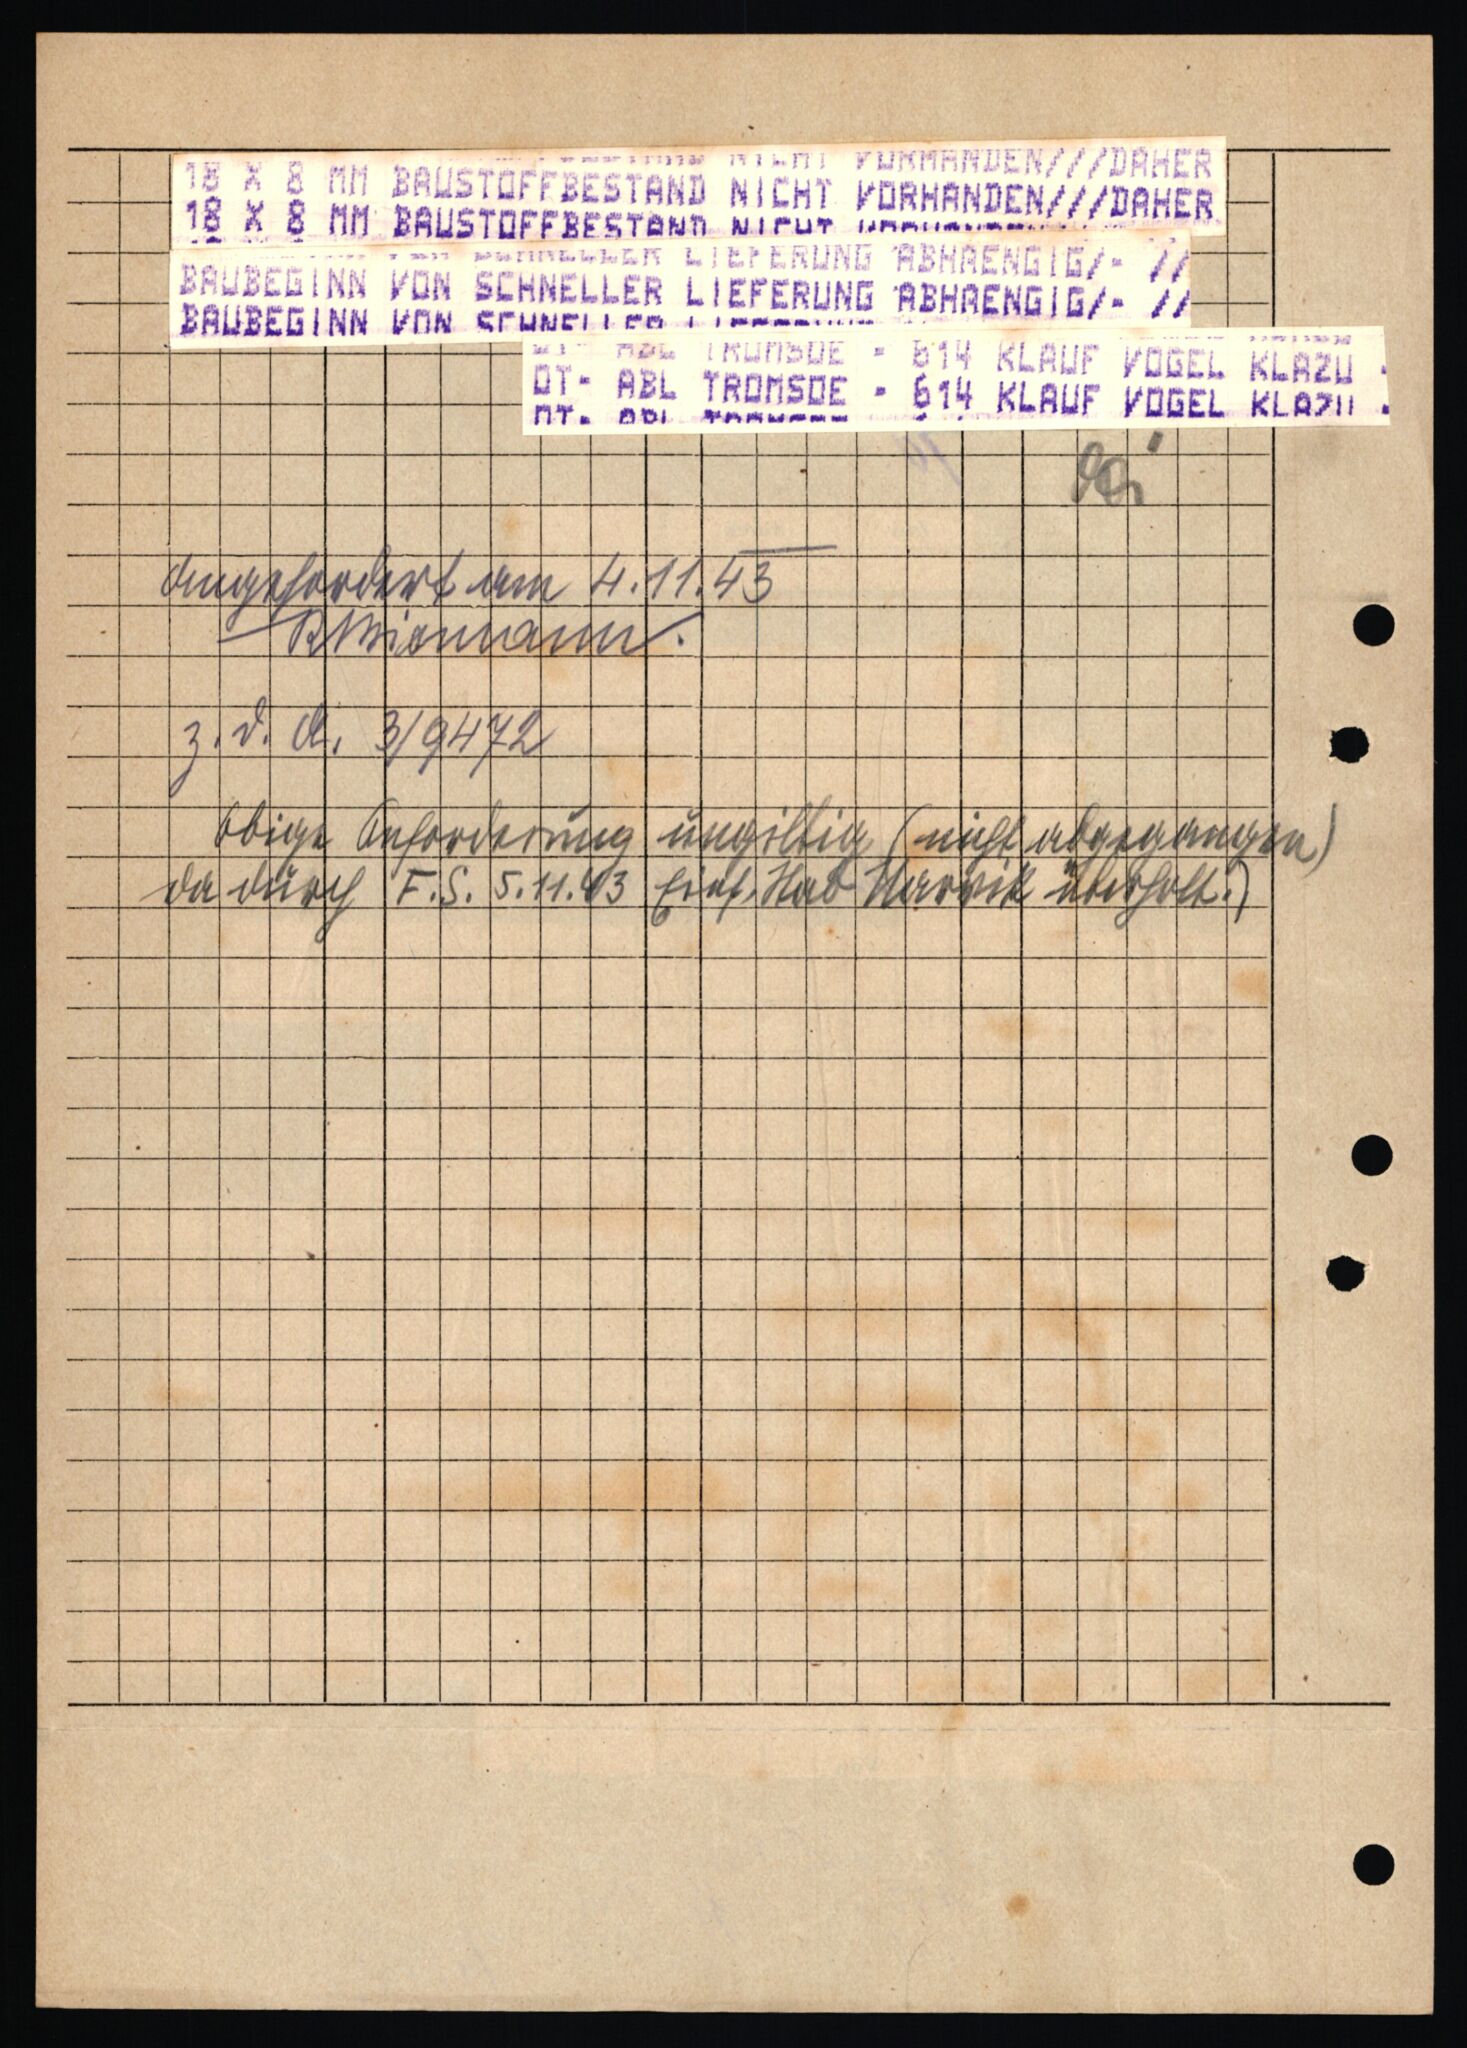 18 X 8 MM BAUSTOFFBESTAND NICHT VORHANDEN///DAHER
BAUBEGINN VON SCHNELLER LIEFERUNG ABHAENGIG/- //
OT- ABL TROMSOE - 614 KLAUF VOGEL KLAZU -
Angefordert am 4.11.43
z. d. A. 3/9472
Obige Anforderung ungiltig (nicht abgegangen)
da durch F.S. 5.11.43 Narvik überholt.)